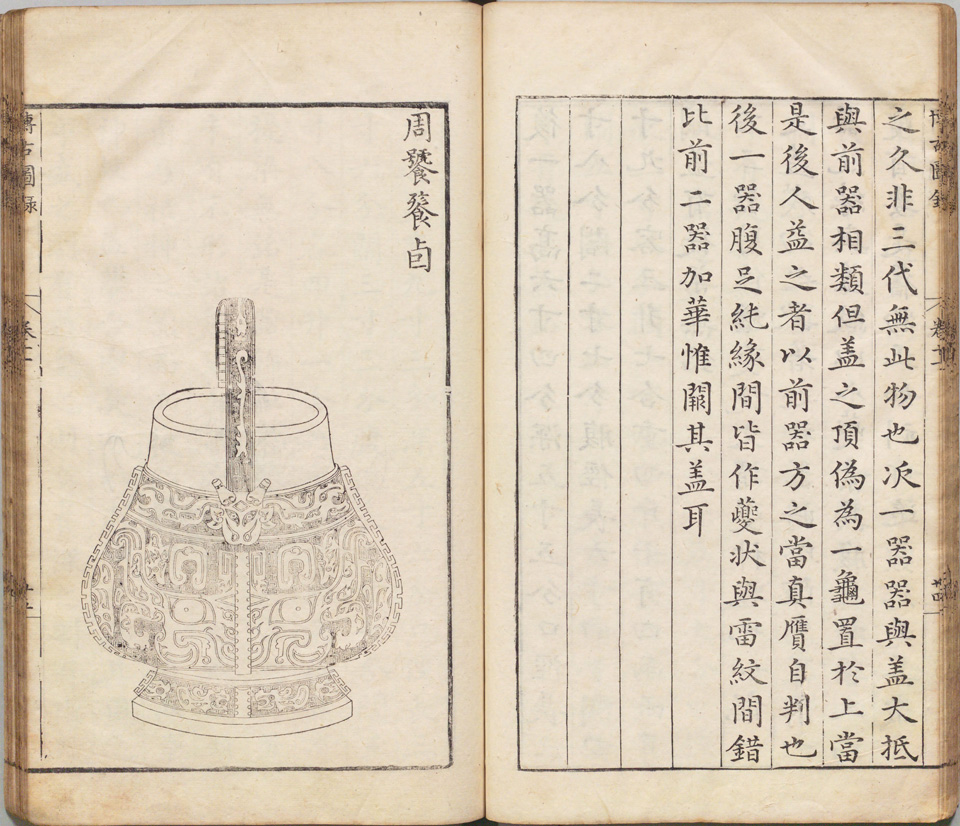 之久非三代無此物也次一器器與盖大抵
與前器相類但盖之頂偽為一龜置於上當
是後人益之者以前器方之當真贋自判也
後一器腹足純緣間皆作夔状與雷紋間錯
比前二器加華惟闕其盖耳
周饕餮卣
博古圖錄